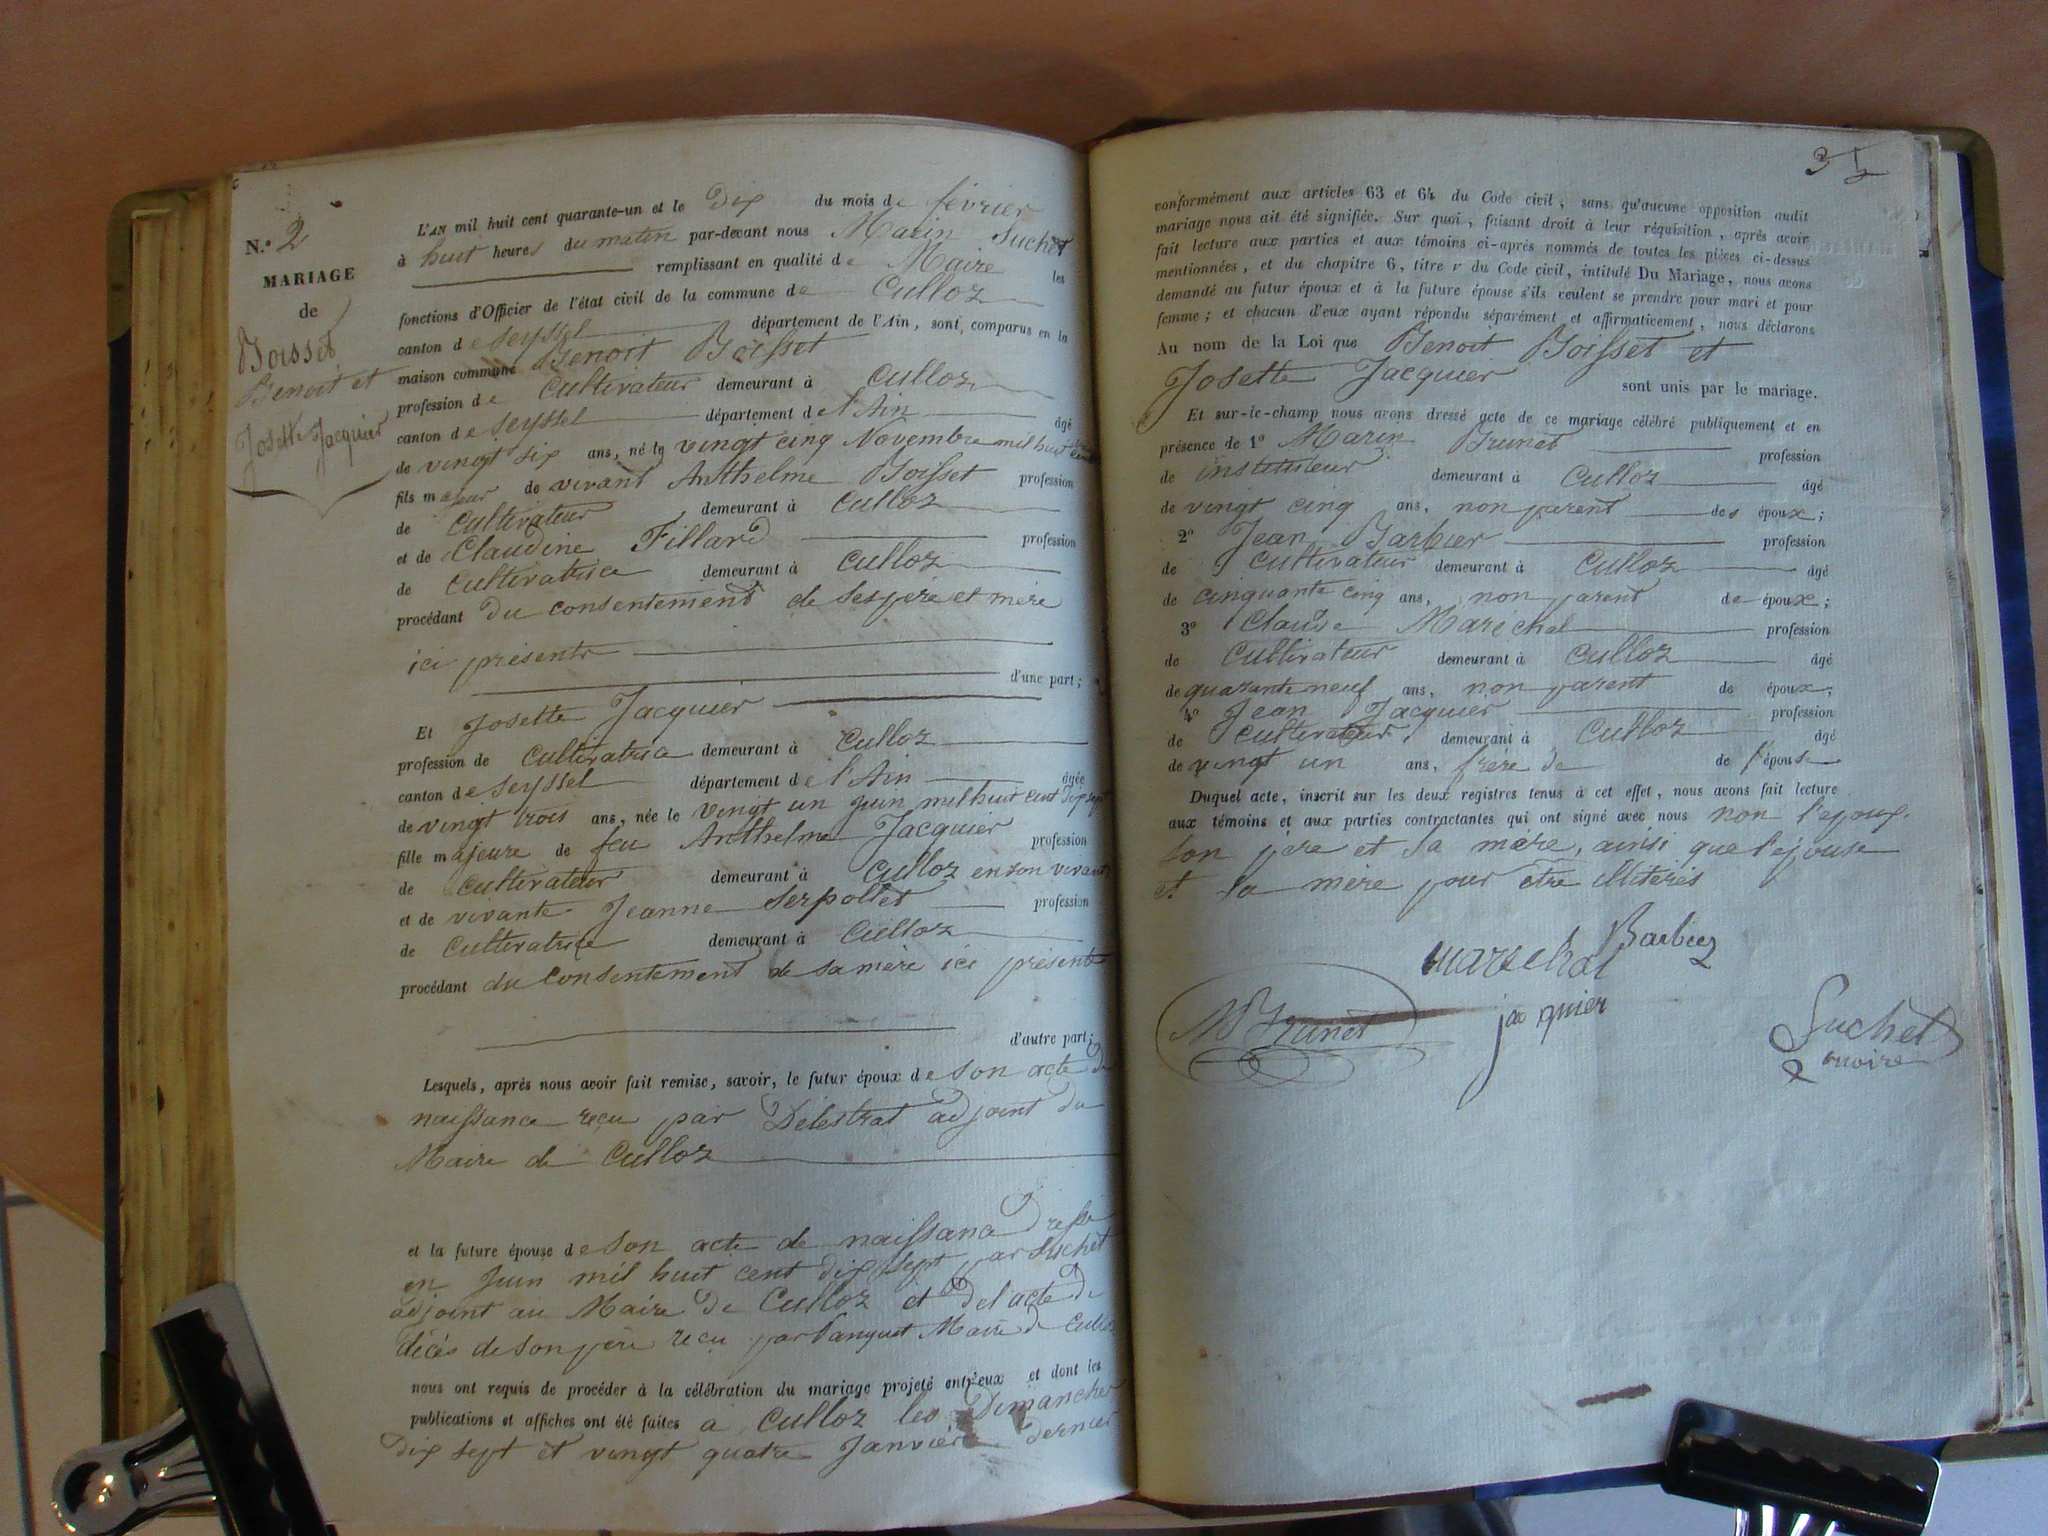 N.º 2
MARIAGE
de
Boisset
Benoit et
Josette Jacquier
L'AN mil huit cent quarante-un et le Dix du mois de février
à huit heures du matin par-devant nous Marin Suchet
remplissant en qualité de Maire les
fonctions d'Officier de l'état civil de la commune de Culloz
canton de Seyssel département de l'Ain, sont comparus en la
maison commune Benoit Boisset
profession de Cultivateur demeurant à Culloz
canton de Seyssel département de l'Ain âgé
de vingt six ans, né le vingt cinq Novembre mil huit cent
fils majeur de vivant Anthelme Boisset profession
de Cultivateur demeurant à Culloz
et de Claudine Fillard profession
de Cultivatrice demeurant à Culloz
procédant Du consentement de ses père et mère
ici présents
d'une part;
Et Josette Jacquier
profession de Cultivatrice demeurant à Culloz
canton de Seyssel département de l'Ain âgée
de vingt trois ans, née le vingt un Juin mil huit cent dix sept
fille majeure de feu Anthelme Jacquier profession
de Cultivateur demeurant à Culloz en son vivant
et de vivante Jeanne Serpollet profession
de Cultivatrice demeurant à Culloz
procédant du consentement de sa mère ici présente
d'autre part;
Lesquels, après nous avoir fait remise, savoir, le futur époux de son acte de
naissance reçu par Delestrat adjoint du
Maire de Culloz
et la future épouse de son acte de naissance Dressé
en Juin mil huit cent dix sept par Suchet
adjoint au Maire de Culloz et del'acte de
décès de son père reçu par Maire de Culloz
nous ont requis de procéder à la célébration du mariage projeté entr'eux et dont les
publications et affiches ont été faites à Culloz les Dimanches
Dix sept et vingt quatre Janvier dernier
3
conformément aux articles 63 et 64 du Code civil, sans qu'aucune opposition audit
mariage nous ait été signifiée. Sur quoi, faisant droit à leur réquisition, après avoir
fait lecture aux parties et aux témoins ci-après nommés de toutes les pièces ci-dessus
mentionnées, et du chapitre 6, titre v du Code civil, intitulé Du Mariage, nous avons
demandé au futur époux et à la future épouse s'ils veulent se prendre pour mari et pour
femme; et chacun d'eux ayant répondu séparément et affirmativement, nous déclarons
Au nom de la Loi que Benoit Boisset et
Josette Jacquier sont unis par le mariage.
Et sur-le-champ nous avons dressé acte de ce mariage célébré publiquement et en
présence de 1º Marin Brunet profession
de instituteur demeurant à Culloz âgé
de vingt cinq ans, non parent des époux;
2º Jean Barbier profession
de Cultivateur demeurant à Culloz âgé
de cinquante cinq ans, non parent de époux;
3º Claude Maréchal profession
de Cultivateur demeurant à Culloz âgé
de quarante neuf ans, non parent de époux;
4º Jean Jacquier profession
de Cultivateur demeurant à Culloz âgé
de vingt un ans, frère de de l'épouse
Duquel acte, inscrit sur les deux registres tenus à cet effet, nous avons fait lecture
aux témoins et aux parties contractantes qui ont signé avec nous non l'époux.
son père et sa mère, ainsi que l'épouse
et sa mère pour être illitérés
marechal Barbier
M Brunet jacquier Suchet
maire